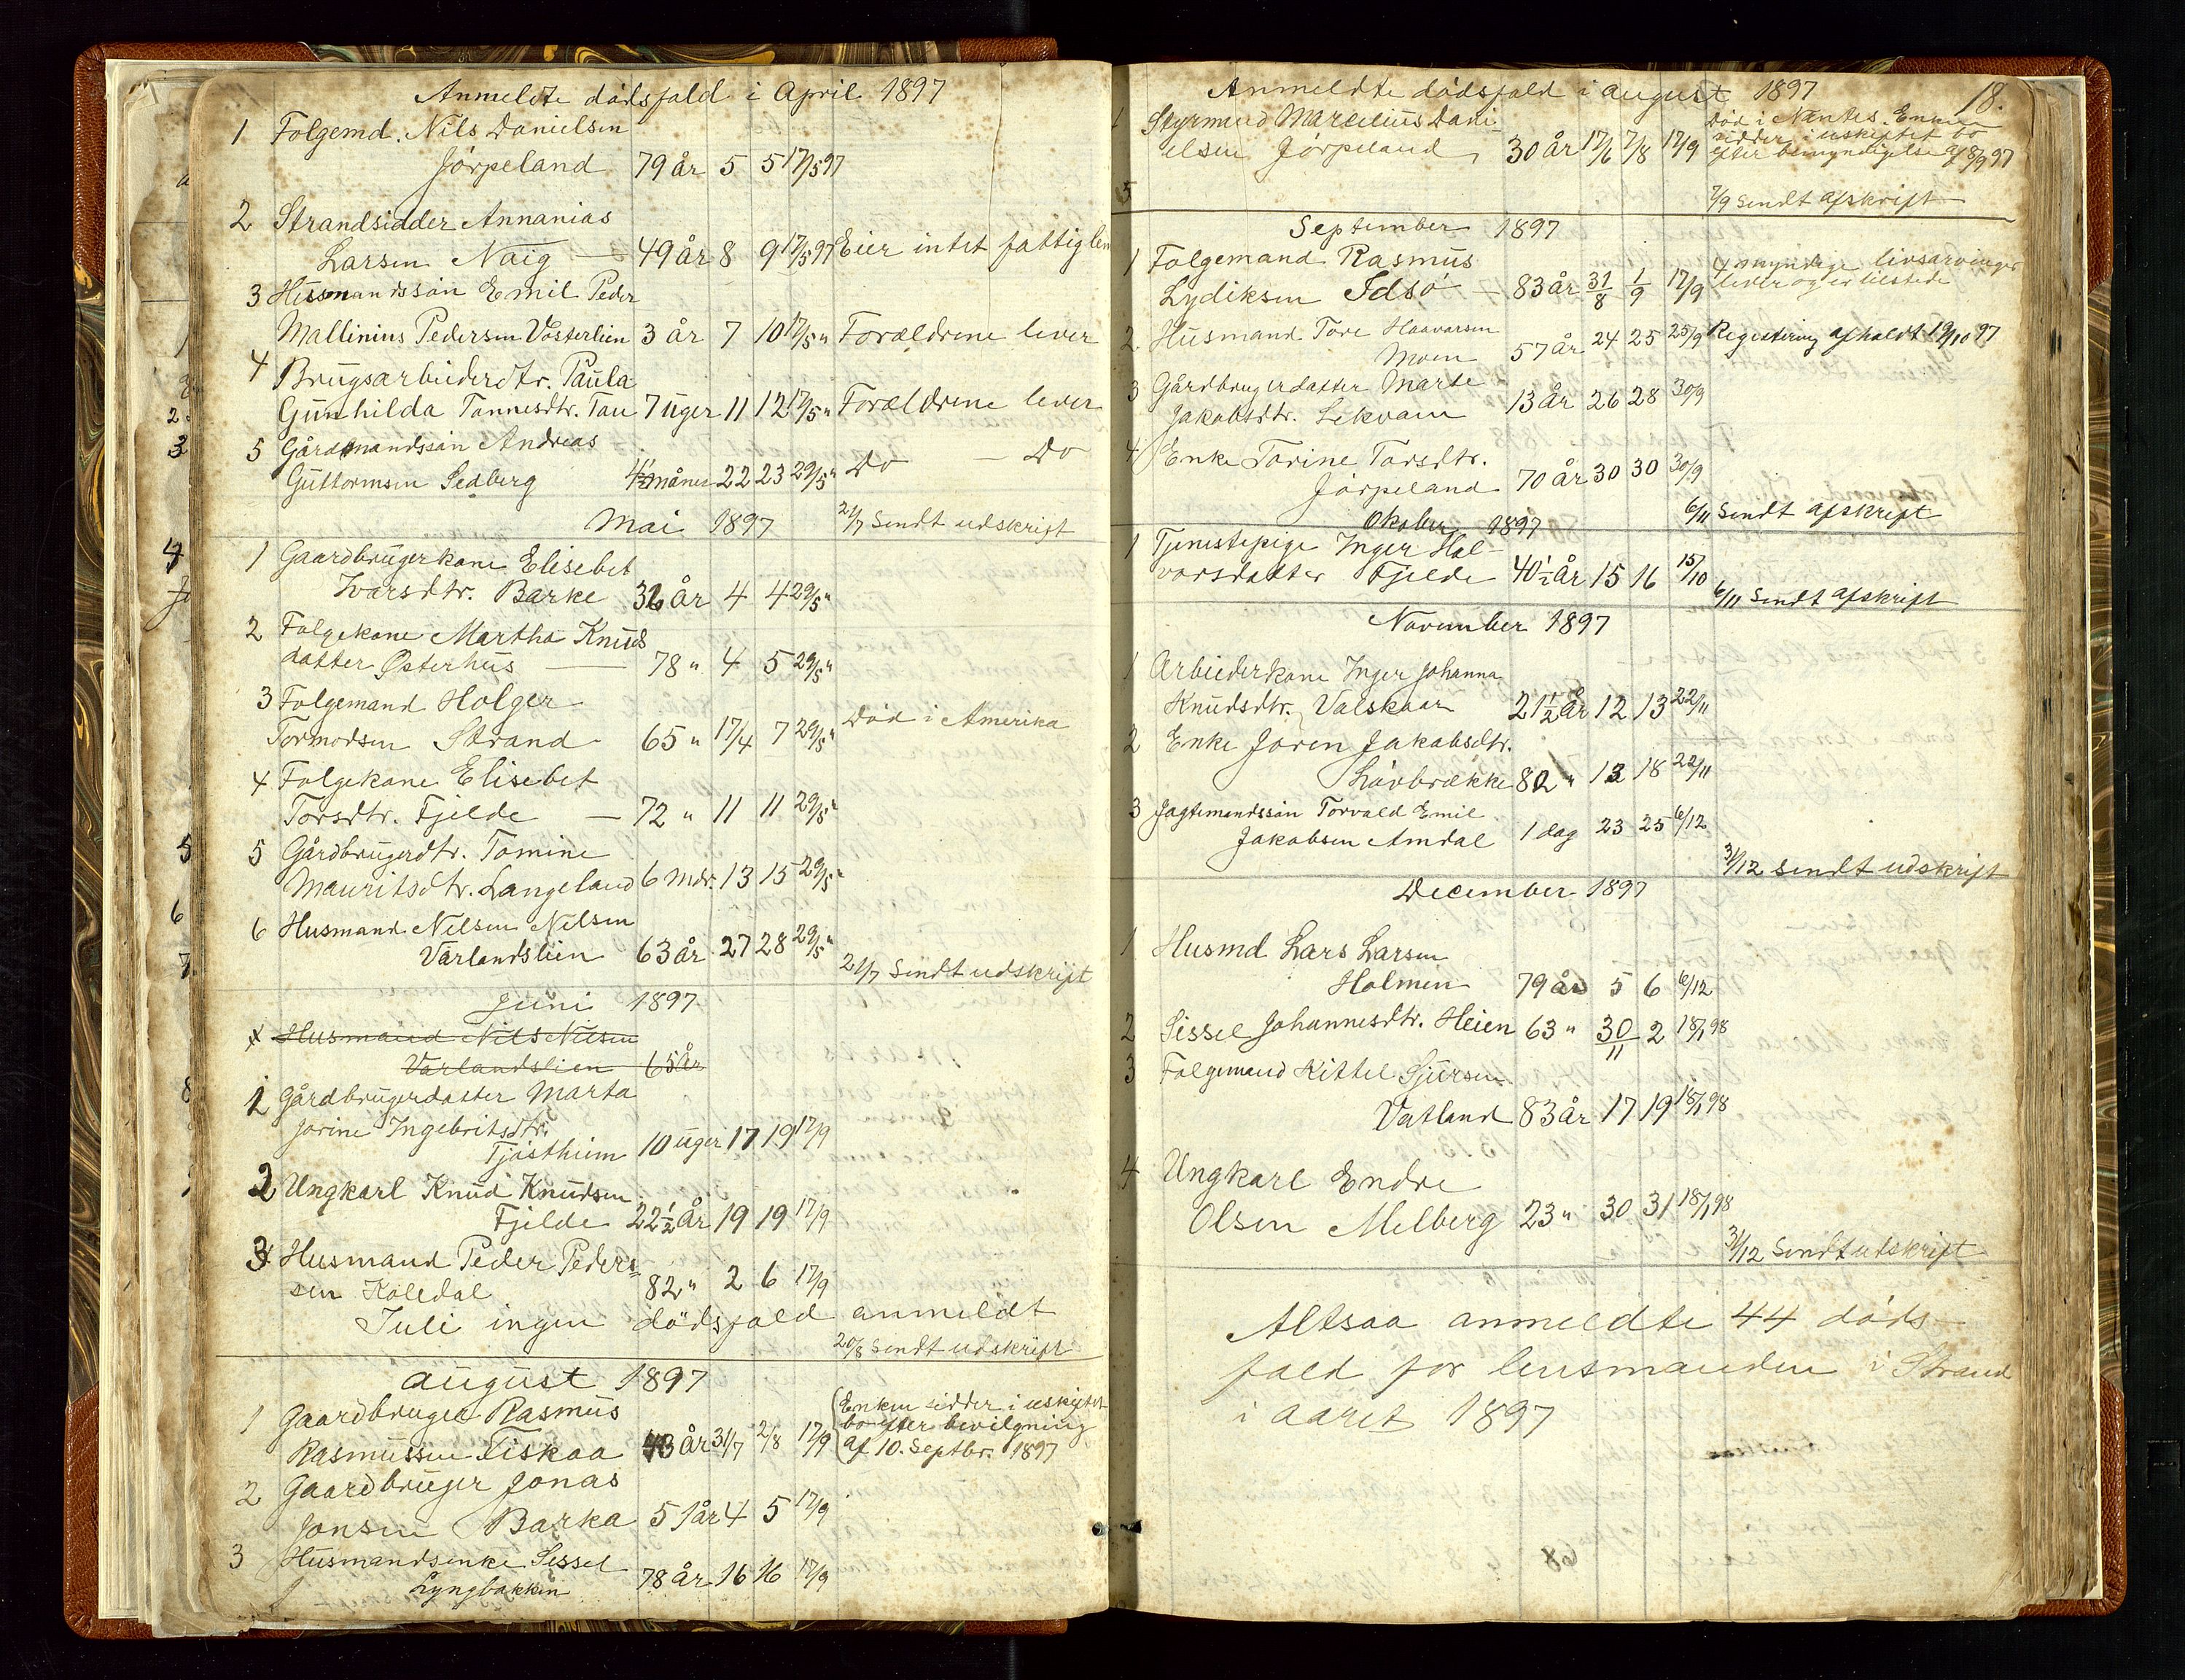 Anmeldte dødsfald i April 1897
1 Folgemd. Nils Danielsen
Jörpeland 79 år 5 5 17/5 97
2 Strandsidder Annanias
Larsen Naig — 49 år 8 9 17/5 97 Eier intet fattiglem
3 Husmandssön Emil Peder
Mallinius Pedersen Vosterlien 3 år 7 10 17/5 " Forældrene lever
4 Brugsarbeiderdtr. Paula
Gunhilda Tønnesdtr. Tau 7 uger 11 12 17/5 " Forældrene lever
5 Gårdmandssön Andreas
Guttormsen Sedberg 4½ måned 22 23 29/5 " Do — Do
Mai 1897 21/7 Sendt udskrift
1 Gaardbrugerkone Elisebet
Ivarsdtr. Barke 36 år 4 4 29/5 "
2 Folgekone Martha Knuds
datter Østerhus — 78 " 4 5 29/5 "
3 Folgemand Holger
Tormodsen Strand 65 " 17/4 7 29/5 " Död i Amerika
4 Folgekone Elisebet
Torsdtr. Fjelde — 72 " 11 11 29/5 "
5 Gårdbrugerdtr. Tomine
Mauritsdtr. Langeland 6 Mdr. 13 15 29/5 "
6 Husmand Nilsen Nilsen
Varlandslien 63 år 27 28 29/5 "
21/7 Sendt udskrift
Juni 1897
Husmand Nils Nilsen
Varlandslien 65 År
1 Gårdbrugerdatter Marta
Jorine Ingebritsdtr.
Tjöstheim 10 uger 17 19 17/9
2 Ungkarl Knud Knudsen
Fjelde 22½ År 19 19 17/9
3 Husmand Peder Peder=
sen Koledal 82 " 2 6 17/9
Juli ingen dödsfald anmeldt
20/8 Sendt udskrift
August 1897
1 Gaardbruger Rasmus
Rasmussen Fiskaa 43 år 31/7 2/8 17/9
(Enken sidder i uskiftet
bo efter bevilgning
af 10. Septbr. 1897
2 Gaardbruger Jonas
Jonsen Barka 51 år 4 5 17/9
3 Husmandsenke Sissel
Lyngbakken 78 År 16 16 17/9
Anmeldte dødsfald i August 1897 18.
1 Styrmand Marcelius Dani
elsen Jörpeland 30 år 17/6 7/8 17/9
Död i Nantes. Enken
sidder i uskiftet bo
efter bemyndigelse af 8/9 97
5
7/9 Sendt afskrift
September 1897
1 Folgemand Rasmus
Lydiksen Idsö — 83 år 31/8 1/9 17/9
4 myndige livsarvinger
lever og er tilstede
2 Husmand Tore Haavarsen
Moen 57 år 24 25 25/9 Registering afholdt 19/10 97
3 Gårdbrugerdatter Marte
Jakobsdtr. Lekvam 13 år 26 28 30/9
4 Enke Torine Torsdtr.
Jörpeland 70 år 30 30 30/9
6/11 Sendt afskrift
Oktober 1897
1 Tjenestepige Inger Hal-
vorsdatter Fjelde 40½ år 15 16 15/10
6/11 Sendt afskrift
November 1897
1 Arbeiderkone Inger Johanna
Knudsdtr. Valskaar 21½ År 12 13 22/11
2 Enke Joren Jakobsdtr.
Lövbrække 82 " 13 18 22/11
3 Jagtemandssön Torvald Emil
Jakobsen Amdal 1 dag 23 25 6/12
31/12 Sendt udskrift
December 1897
1 Husmd Lars Larsen
Holmen 79 år 5 6 6/12
2 Sissel Johannesdtr. Heien 63 " 30/11 2 18/1 98
3 Folgemand Kittel Sjursen
Vatland 83 år 17 19 18/1 98
4 Ungkarl Endre
Olsen Melberg 23 " 30 31 18/1 98
31/12 Sendt udskrift
Altsaa anmeldte 44 döds-
fald for lensmanden i Strand
i aaret 1897